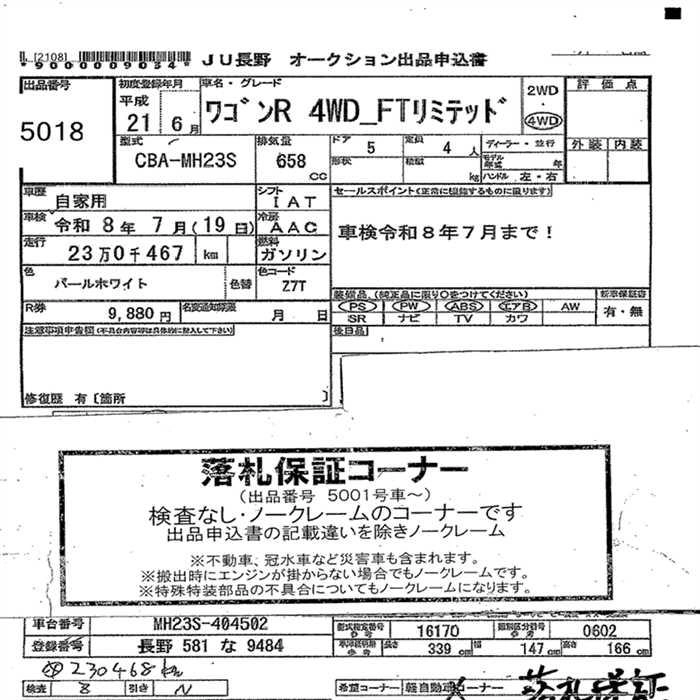 [2108]
*9000009034* JU長野 オークション出品申込書
出品番号 5018
初度登録年月 平成 21年 6月
車名・グレード ワゴンR 4WD_FTリミテッド
2WD 4WD
評価点
外装 内装
型式 CBA-MH23S
排気量 658 CC
ドア 5
形状
定員 4人
積載 kg
ディーラー・並行
モデル年式 年
ハンドル 左・右
車歴 自家用
シフト IAT
セールスポイント(正常に機能するものに限ります)
車検令和8年7月まで!
車検 令和 8年 7月(19日)
冷房 AAC
走行 23万0千467 km
燃料 ガソリン
色 パールホワイト 色替
色コード Z7T
装備品(純正品に限り○をつけてください) 新車保証書
PS PW ABS エアB AW 有・無
SR ナビ TV カワ
R券 9,880円
名変通知期限 月 日
後日品
注意事項申告欄(不具合内容等は具体的に記入して下さい)
修復歴 有〔箇所 〕
落札保証コーナー
(出品番号 5001号車~)
検査なし・ノークレームのコーナーです
出品申込書の記載違いを除きノークレーム
※不動車、冠水車など災害車も含まれます。
※搬出時にエンジンが掛からない場合でもノークレームです。
※特殊特装部品の不具合についてもノークレームになります。
車台番号 MH23S-404502
型式指定番号 参考 16170
類別区分番号 参考 0602
登録番号 長野 581 な 9484
長さ 339 cm 幅 147 cm 高さ 166 cm
230468 km
検査 8 引き N
希望コーナー 軽自動車コーナー 落札保証